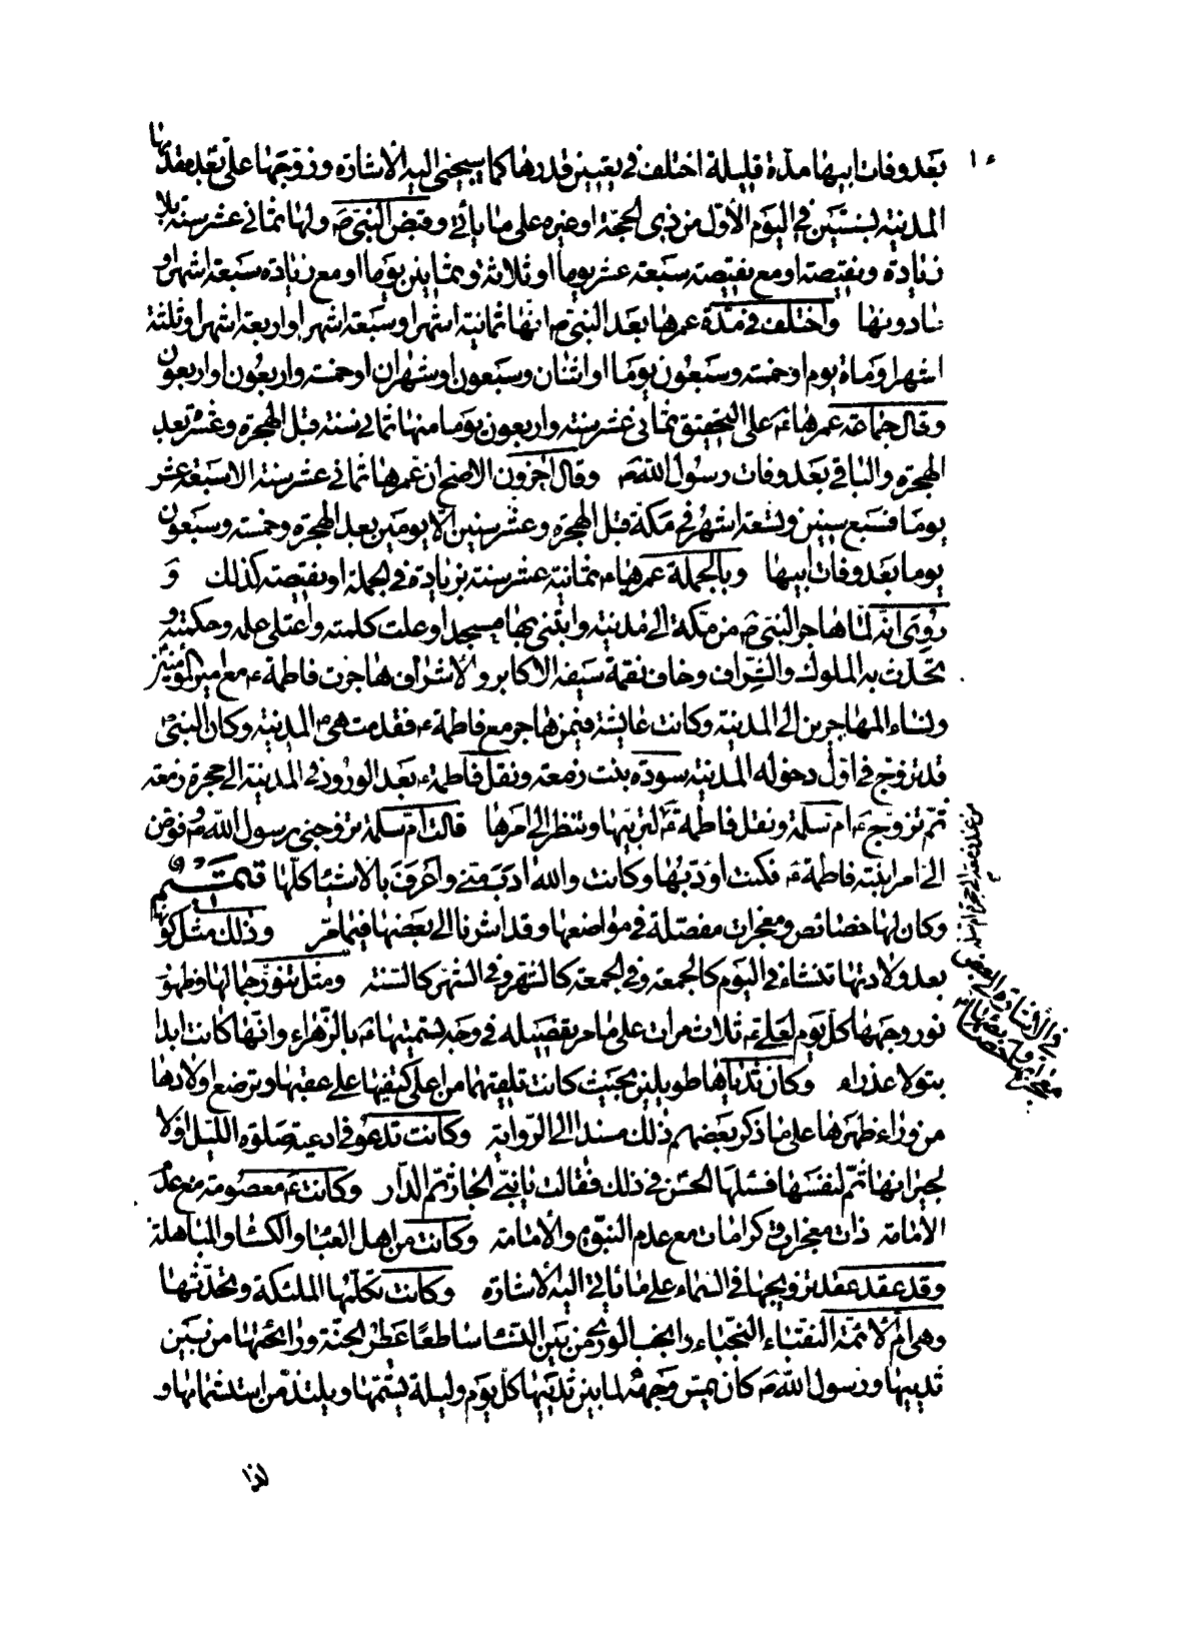 بعد وفات ابيها مدة قليلة اختلف في تعيين قدرها كما سيجئ اليه الاشارة وزوجها علي ع بعد مقدمها
المدينة بسنتين في اليوم الأول من ذي الحجة او غيره على ما يأتي وقبض النبي ص ولها ثماني عشر سنة بلا
زيادة ونقيصة او مع نقيصة سبعة عشر يوما او ثلاثة وثمانين يوما او مع زيادة سبعة اشهر او
نادونها واختلف في مدة عمرها بعد النبي ص انها ثمانية اشهر او سبعة اشهر او اربعة اشهر او ثلثة
اشهر او ماة يوم او خمسة وسبعون يوما او اثنان وسبعون او شهران او خمسة واربعون او اربعون
وقال جماعة عمرها ع على التحقيق ثماني عشر سنة واربعون يوما منها ثماني سنة قبل الهجرة وعشر بعد
الهجرة والباقي بعد وفات رسول الله ص وقال اخرون الاصح ان عمرها ثماني عشر سنة الا سبعة عشر
يوما فسبع سنين وتسعة اشهر في مكة قبل الهجرة وعشر سنين الا يومين بعد الهجرة وخمسة وسبعون
يوما بعد وفات ابيها وبالجملة عمرها ع ثمانية عشر سنة بزيادة في الجملة او نقيصة كذلك و
روى انه لما هاجر النبي ص من مكة الى مدينة وابتنى بها مسجدا وعلت كلمته واعتلى علمه وحكمته و
تحدث به الملوك والشراف وخاف نقمة سيفه الاكابر والأشراف هاجرت فاطمة ع مع امير المؤمنين
ونساء المهاجرين الى المدينة وكانت عايشة فيمن هاجر مع فاطمة ع فقدمت هي ع المدينة وكان النبي ص
قد تزوج في اول دخوله المدينة سودة بنت زمعة ونقل فاطمة ع بعد الورود في المدينة الى حجرة زمعة
ثم تزوج ع ام سلمة ونقل فاطمة ع لتربيها وتنظر الى امرها قالت ام سلمة تزوجني رسول الله ص وفوض
الي امر ابنته فاطمة ع فكنت اؤدبها وكانت والله ادب مني واعرف بالأشياء كلها
وكان لها خصائص ومعجزات مفصلة في مواضعها وقد اشرنا الى بعضها فيما مر وذلك مثل كونها
بعد ولادتها تنشاء في اليوم كالجمعة وفي الجمعة كالشهر وفي الشهر كالسنة ومثل تنور جمالها وظهور
نور وجهها كل يوم لعلي ع ثلاث مرات على ما مر تفصيله في وجه تسميتها ع بالزهراء وانها كانت ابدا
بتولا عذراء وكان ثدياها طويلين بحيث كانت تلقيهما من اعلى كتفيها على عقبها وترضع اولادها
من وراء ظهرها على ما ذكر بعضهم ذلك مسندا الى الرواية وكانت تدعو في ادعية صلوة الليل اولا
لجيرانها ثم لنفسها فسئلها الحسن في ذلك فقالت يا بني الجار ثم الدار وكانت ع معصومة مع عدم
الأمامة ذات معجزات وكرامات مع عدم النبوة والأمامة وكانت من اهل العبا والكساء والمباهلة
وقد عقد عقد تزويجها في السماء على ما يأتي اليه الأشارة وكانت تكلمها الملئكة وتحدثها
وهي ام الأئمة النقباء النجباء من بين النساء ساطعا عطر الجنة ورائحتها من بين
ثدييها ورسول الله ص كان يمس وجهه لما بين ثدييها كل يوم وليلة يشمها ويلتذ من استشمامها و
لذا